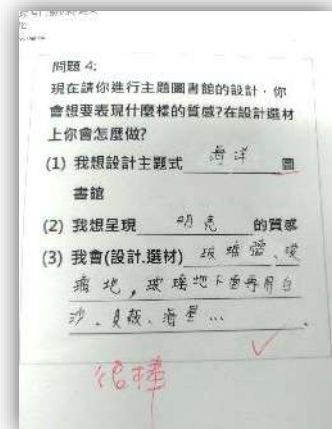 問題 4:
現在請你進行主題圖書館的設計，你
會想要表現什麼樣的質感?在設計選材
上你會怎麼做?
(1) 我想設計主題式 海洋 圖
書館
(2) 我想呈現 明亮 的質感
(3) 我會(設計.選材) 玻璃牆、玻
璃地，玻璃地下面再用白
沙、貝殼、海星…
很棒